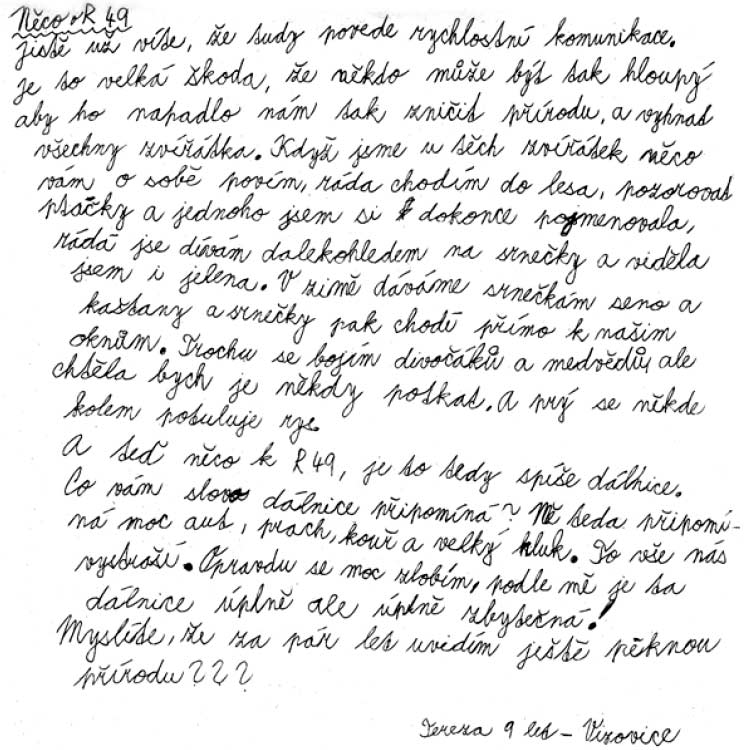 Něco o R 49
jistě už víte, že tudy povede rychlostní komunikace.
je to velká škoda, že někdo může být tak hloupý
aby ho napadlo nám tak zničit přírodu, a vyhnat
všechny zvířátka. Když jsme u těch zvířátek něco
vám o sobě povím, ráda chodím do lesa, pozorovat
ptáčky a jednoho jsem si dokonce pojmenovala,
ráda se dívám dalekohledem na srnečky a viděla
jsem i jelena. V zimě dáváme srnečkám seno a
kaštany a srnečky pak chodí přímo k našim
oknům. Trochu se bojím divočáků a medvědů, ale
chtěla bych je někdy potkat. A prý se někde
kolem potuluje rys.
A teď něco k R 49, je to tedy spíše dálnice.
Co vám slovo dálnice připomíná? Mě teda připomí-
ná moc aut, prach, kouř a velký hluk. To vše nás
vystraší. Opravdu se moc zlobím, podle mě je ta
dálnice úplně ale úplně zbytečná!
Myslíte, že za pár let uvidím ještě pěknou
přírodu???
Tereza 9 let - Vizovice